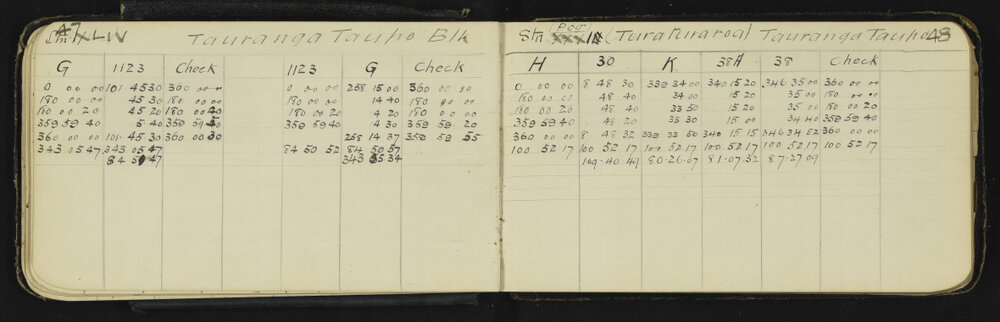 47
Stn XLIV Tauranga Tauho Blk
G 1123 Check 1123 G Check
0 00 00 101 45 30 360 00 00 0 00 00 258 15 00 360 00 00
180 00 00 45 30 180 00 00 180 00 00 14 40 180 00 00
180 00 20 45 20 180 00 40 180 00 20 4 20 180 00 00
359 59 40 5 40 359 59 50 359 59 40 4 30 359 59 20
360 00 00 101 45 30 360 00 30 258 14 37 359 59 55
343 05 47 343 05 47 84 50 52 84 50 57
84 51 47 343 05 34
(Peg)
Stn (Turaturaroa) Tauranga Tauho 48
H 30 K 38A 38 Check
0 00 00 8 48 30 339 34 00 340 15 20 346 35 00 360 00 00
180 00 00 48 40 34 00 15 20 35 00 180 00 00
180 00 20 48 40 33 50 15 20 35 00 180 00 20
359 59 40 48 20 33 30 15 00 34 40 359 59 40
360 00 00 8 48 32 339 33 50 340 15 15 346 34 52 360 00 00
100 52 17 100 52 17 100 52 17 100 52 17 100 52 17 100 52 17
109·40 49 80·26·07 81·07·32 87·27·09